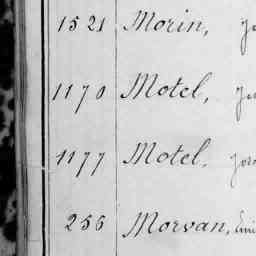 1521 Morin,
1170 Motel,
1177 Motel,
256 Morvan,